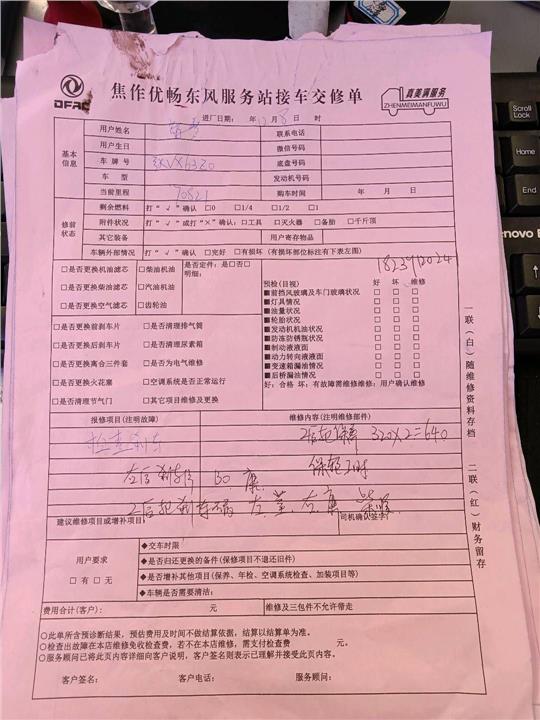 DFAC
焦作优畅东风服务站接车交修单
真美满服务
ZHENMEIMANFUWU
进厂日期： 年 12月8日 时
基本信息
用户姓名
联系电话
用户生日
微信号码
车牌号
底盘号码
车型
发动机号码
当前里程 70821 购车时间 年 月 日
修前状态
剩余燃料 打“√”确认 □0 □1/4 □1/2 □1
附件状况 打“√”或打“×”确认：□工具 □灭火器 □备胎 □千斤顶
其它装备 用户寄存物品
车辆外部情况 打“√”确认 □完好 □有损坏（有损坏部位标注有下表左图）
□是否更换机油滤芯 □柴油机油
□是否更换柴油滤芯 □汽油机油
□是否更换空气滤芯 □齿轮油
是否定件：是□否□
明细：
□是否更换前刹车片 □是否清理排气筒
□是否更换后刹车片 □是否清理尿素箱
□是否更换离合三件套 □是否为电气维修
□是否更换火花塞 □空调系统是否正常运行
□是否清理节气门 □其它项目维修及更换
1823912024
预检(目视) 好 坏 维修
■前挡风玻璃及车门玻璃状况
■灯具情况
■油量状况
■轮胎状况
■发动机机油状况
■防冻防锈瓶状况
■制动液液面
■动力转向液液面
■变速箱漏油情况
■后桥漏油情况
好：合格 坏：有故障需维修维修：用户确认维修
报修项目(注明故障) 维修内容(注明维修部件)
检查刹车
320×2=640
建议维修项目或增补项目： 司机确认签字：
用户要求
□有 □无
◆交车时限
◆是否归还更换的备件(保修项目不退还旧件)
◆是否增补其他项目(保养、年检、空调系统检查、加装项目等)
◆车辆是否需要清洁：
费用合计(客户)： 元 维修及三包件不允许带走
○此单所含预诊断结果，预估费用及时间不做结算依据，结算以结算单为准。
○检查出故障在本店维修免收检查费，若不在本店维修，需支付检查费 元。
○服务顾问已将此页内容详细向客户说明，客户签名则表示已理解并接受此页内容。
客户签名： 客户电话： 服务顾问：
一联(白)随维修资料存档
二联(红)财务留存
Scroll Lock
Home
End
Lenovo